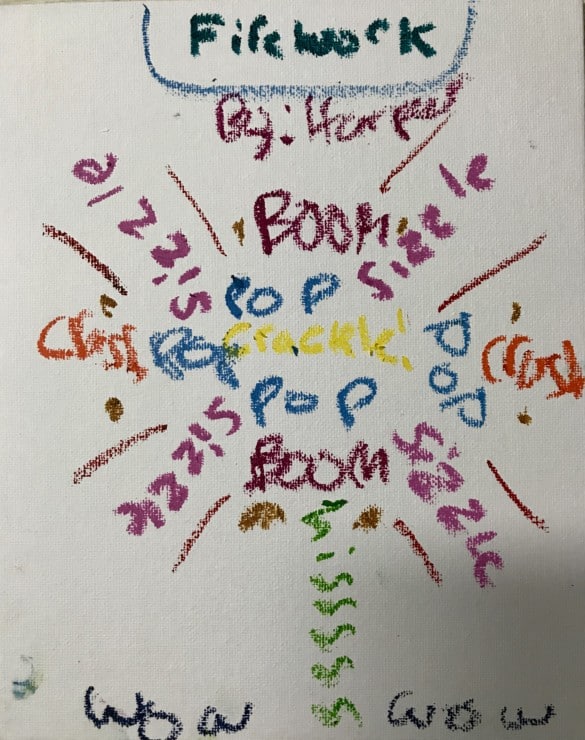 Firework
By: Harper
BOOM
Sizzle
Sizzle
POP
Crackle!
Pop
Pop
Crash
Crash
POP
BOOM
Sizzle
Sizzle
wow
wow